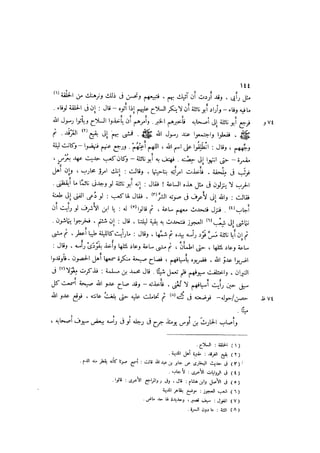 ١٤٤
مثل رأيى ، وقد أردت أن آتيك بهم ، فتبيعهم وتحسن فى ذلك ونرهنك من الحلقة (١)
مافيه وفاء – وأراد أبو نائلة أن لا ينكر السلاح عليهم إذا أتوه – قال : إن فى الحلقة لوفاء .
٧٤ و فرجع أبو نائلة إلى أصحابه فأخبرهم الخبر . وأمرهم أن يأخذوا السلاح ويأتوا رسول الله
ﷺ ، ففعلوا واجتمعوا عند رسول الله ﷺ . فمشى بهم إلى بقيع (٢) الغرقد . ثم
وجههم ، وقال : انطلقوا على اسم الله ، اللهم أعنهم . ورجع عنهم فنهضوا – وكانت ليلة
مقمرة – حتى انتهوا إلى حصنه . فهتف به أبو نائلة – وكان كعب حديث عهد بعرس ،
فوثب فى ملحفة . فأخذت امرأته بناحيتها ، وقالت : إنك امرؤ محارب ، وإن أهل
الحرب لا ينزلون فى مثل هذه الساعة ! فقال : إنه أبو نائلة لو وجدنى نائما ما أيقظنى .
فقالت : والله إنى لأعرف فى صوته الشر (٣) . فقال لها كعب : لو دعى الفتى إلى طعنة
أجاب (٤) . فنزل فتحدث معهم ساعة ، ثم قالوا (٥) له : يا ابن الأشرف لو رأيت أن
نتماشى إلى شعب (٦) العجوز فنتحدث به بقية ليلتنا . قال : إن شئتم . فخرجوا يتماشون .
ثم إن أبا نائلة مس فود رأسه بيده ثم شمها . وقال : مارأيت كالليلة طيبا أعطر ، ثم مشى
ساعة وعاد لمثلها ، حتى اطمأن ، ثم مشى ساعة وعاد لمثلها وأخذ بفودى رأسه . وقال :
اضربوا عدو الله ، فضربوه بأسيافهم ، فصاح صيحة منكرة سمعها أهل الحصون . فأوقدوا
النيران ، واختلفت سيوفهم فلم تعمل شيئا . قال محمد بن مسلمة : فذكرت مغولا (٧) فى
سيفى حين رأيت أسيافهم لا تغنى ، فأخذته – وقد صاح عدو الله صيحة أسمعت كل
٧٤ ظ حصن/حوله – فوضعته فى ثنته (٨) ثم تحاملت عليه حتى بلغت عانته ، فوقع عدو الله
ميتا .
وأصاب الحارث بن أوس يومئذ جرح فى رجله أو فى رأسه ببعض سيوف أصحابه ،
(١) الحلقة : السلاح .
(٢) بقيع الغرقد : مقبرة أهل المدينة .
(٣) فى حديث البخارى عن جابر بن عبد الله قالت : أسمع صوتا كأنه يقطر منه الدم .
(٤) فى الروايات الأخرى : لأجاب .
(٥) فى الأصل وابن هشام : قال ، وفى المراجع الأخرى : قالوا .
(٦) شعب العجوز : موضع بظاهر المدينة
(٧) المغول : سيف قصير ، وحديدة لها حد ماض .
(٨) الثنة : ما دون السرة .